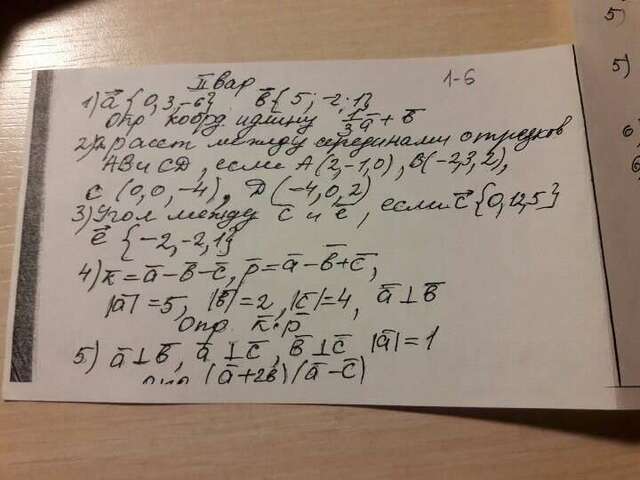 II вар
1-6
1) a⃗ {0,3,-6} b⃗ {5;-2;1}
Опр коорд. и длину 1/3 a̅ + b̅
2) расст между серединами отрезков
АВ и CD, если А(2,-1,0), В(-2,3,2),
С (0,0,-4), D(-4,0,2)
3) Угол между c̅ и e̅, если c⃗ {0,12,5}
e⃗ {-2,-2,1}
4) k̅ = a̅ - b̅ - c̅, p̅ = a̅ - b̅ + c̅,
|a̅| = 5, |b̅| = 2, |c̅| = 4, a̅ ⊥ b̅
Опр. k̅·p̅
5) a̅ ⊥ b̅, a̅ ⊥ c̅, b̅ ⊥ c̅ |a̅| = 1
(a̅ + 2b) (a̅ - c̅)
5)
5)
6,
6,